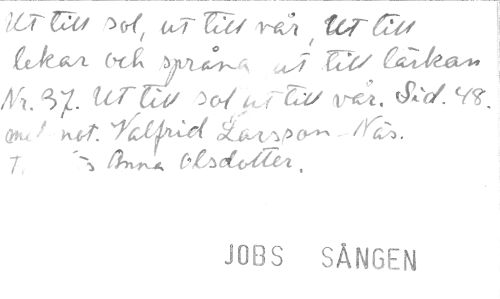 Ut till sol, ut till vår, Ut till
lekar och språng ut till lärkan
Nr. 37. Ut till sol ut till vår. Sid. 48.
med not. Valfrid Larsson Näs.
Anna Olsdotter.
JOBS SÅNGEN